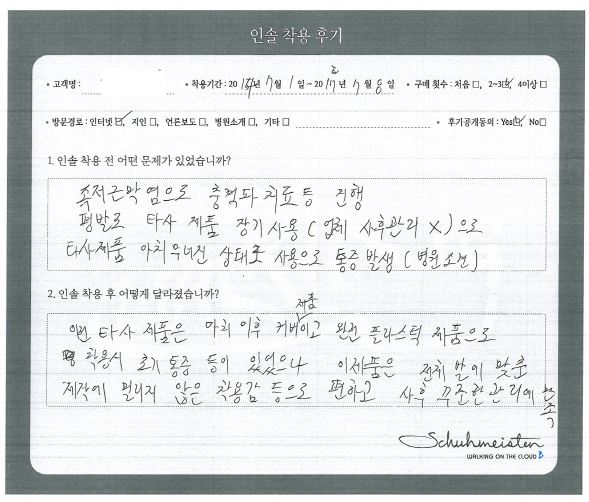 인솔 착용 후기
• 고객명 : • 착용기간 : 20 년 7월 1일 ~ 2017년 7월 8일 • 구매 횟수 : 처음 □, 2~3☑, 4이상 □
• 방문경로 : 인터넷 ☑ 지인 □, 언론보도 □, 병원소개 □, 기타 □ • 후기공개동의 : Yes☑ No□
1. 인솔 착용 전 어떤 문제가 있었습니까?
족저근막염으로 충격파 치료등 진행
평발로 타사 제품 장기 사용 (업체 사후관리 X)으로
타사제품 아치 무너진 상태로 사용으로 통증 발생 (병원소견)
2. 인솔 착용 후 어떻게 달라졌습니까?
제품
타사 제품은 이후 커버이고 완전 플라스틱 제품으로
착용시 초기 통증 등이 있었으나 이제품은 전체 발에 맞춘
제작에 밀리지 않은 착용감 등으로 편하고 사후 꾸준한 관리에 만족
Schuhmeister
WALKING ON THE CLOUD